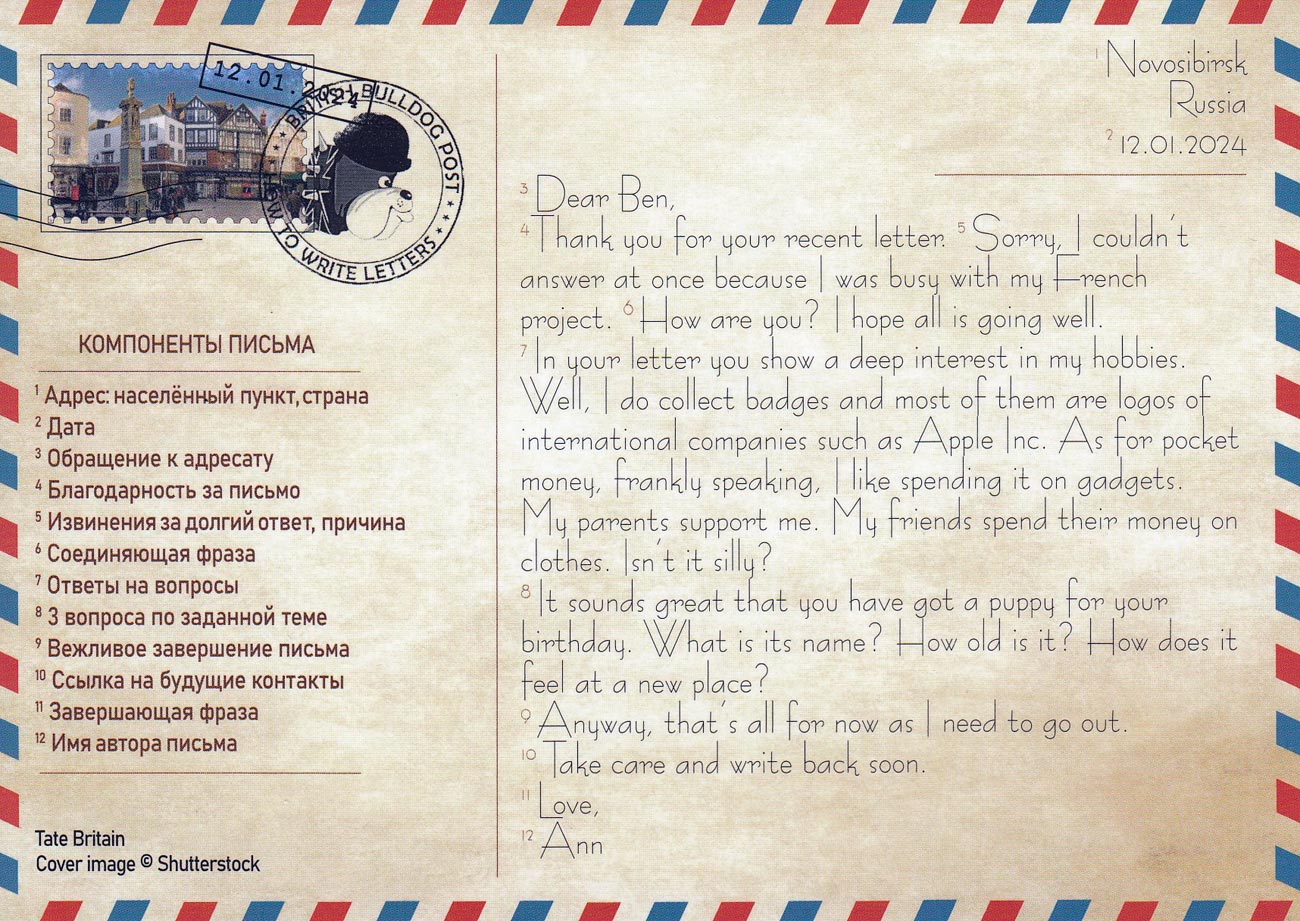 12.01.2024
BRITISH BULLDOG POST
HOW TO WRITE LETTERS
КОМПОНЕНТЫ ПИСЬМА
1 Адрес: населённый пункт, страна
2 Дата
3 Обращение к адресату
4 Благодарность за письмо
5 Извинения за долгий ответ, причина
6 Соединяющая фраза
7 Ответы на вопросы
8 3 вопроса по заданной теме
9 Вежливое завершение письма
10 Ссылка на будущие контакты
11 Завершающая фраза
12 Имя автора письма
Tate Britain
Cover image © Shutterstock
1 Novosibirsk
Russia
2 12.01.2024
3 Dear Ben,
4 Thank you for your recent letter. 5 Sorry, I couldn't
answer at once because I was busy with my French
project. 6 How are you? I hope all is going well.
7 In your letter you show a deep interest in my hobbies.
Well, I do collect badges and most of them are logos of
international companies such as Apple Inc. As for pocket
money, frankly speaking, I like spending it on gadgets.
My parents support me. My friends spend their money on
clothes. Isn't it silly?
8 It sounds great that you have got a puppy for your
birthday. What is its name? How old is it? How does it
feel at a new place?
9 Anyway, that's all for now as I need to go out.
10 Take care and write back soon.
11 Love,
12 Ann